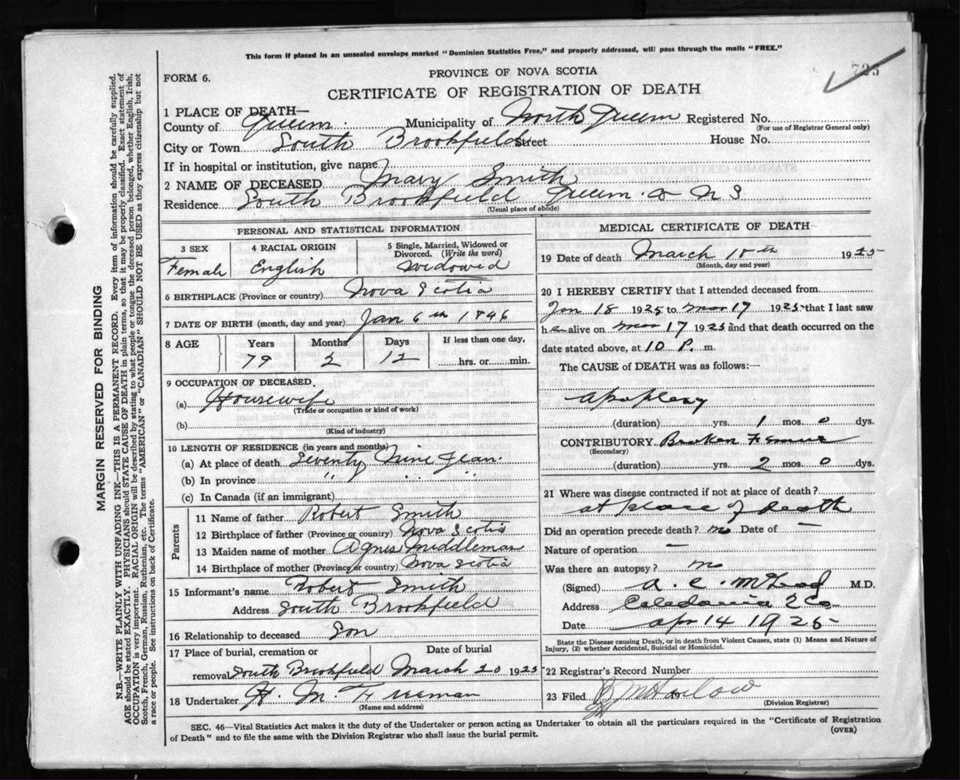 This form if placed in an unsealed envelope marked "Dominion Statistics Free," and properly addressed, will pass through the mails "FREE."
725
FORM 6.
PROVINCE OF NOVA SCOTIA
CERTIFICATE OF REGISTRATION OF DEATH
1 PLACE OF DEATH—
County of Queens Municipality of North Queens Registered No.
(For use of Registrar General only)
City or Town South Brookfield Street House No.
If in hospital or institution, give name
2 NAME OF DECEASED Mary Smith
Residence South Brookfield Queens Co N S
(Usual place of abode)
PERSONAL AND STATISTICAL INFORMATION
3 SEX 4 RACIAL ORIGIN 5 Single, Married, Widowed or Divorced. (Write the word)
Female English Widowed
6 BIRTHPLACE (Province or country) Nova Scotia
7 DATE OF BIRTH (month, day and year) Jan 6th 1846
8 AGE Years Months Days If less than one day,
79 2 12 hrs. or min.
9 OCCUPATION OF DECEASED
(a) Housewife
(Trade or occupation or kind of work)
(b)
(Kind of industry)
10 LENGTH OF RESIDENCE (in years and months)
(a) At place of death Seventy Nine Years
(b) In province " " "
(c) In Canada (if an immigrant)
Parents
11 Name of father Robert Smith
12 Birthplace of father (Province or country) Nova Scotia
13 Maiden name of mother Agnes Middlemas
14 Birthplace of mother (Province or country) Nova Scotia
15 Informant's name Robert Smith
Address South Brookfield
16 Relationship to deceased Son
17 Place of burial, cremation or removal Date of burial
South Brookfield March 20 1925
18 Undertaker H. M. Freeman
(Name and address)
MEDICAL CERTIFICATE OF DEATH
19 Date of death March 18th 1925
(Month, day and year)
20 I HEREBY CERTIFY that I attended deceased from
Jan 18 1925 to Mar 17 1925 that I last saw
h alive on Mar 17 1925 and that death occurred on
date stated above, at 10 P. m.
The CAUSE of DEATH was as follows:—
apoplexy
(duration) yrs. 1 mos. 0 dys.
CONTRIBUTORY Broken Femur
(Secondary)
(duration) yrs. 2 mos. 0 dys.
21 Where was disease contracted if not at place of death?
at place of death
Did an operation precede death? no Date of —
Nature of operation —
Was there an autopsy? no
(Signed) A. C. McLeod M.D.
Address Caledonia Q Co
Date Apr 14 1925
State the Disease causing Death, or in death from Violent Causes, state (1) Means and Nature of Injury, (2) whether Accidental, Suicidal or Homicidal.
22 Registrar's Record Number
23 Filed Harlow
(Division Registrar)
SEC. 46—Vital Statistics Act makes it the duty of the Undertaker or person acting as Undertaker to obtain all the particulars required in the "Certificate of Registration
of Death" and to file the same with the Division Registrar who shall issue the burial permit.
(OVER)
MARGIN RESERVED FOR BINDING
N.B.—WRITE PLAINLY WITH UNFADING INK—THIS IS A PERMANENT RECORD. Every item of information should be carefully supplied.
AGE should be stated EXACTLY. PHYSICIANS should STATE CAUSE OF DEATH in plain terms, so that it may be properly classified. Exact statement of
OCCUPATION is very important. RACIAL ORIGIN will be described by stating to what people or tongue the deceased person belonged, whether English, Irish,
Scotch, French, German, Russian, Ruthenian, etc. The terms "AMERICAN" or "CANADIAN" SHOULD NOT BE USED as they express citizenship but not
a race or people. See instructions on back of Certificate.